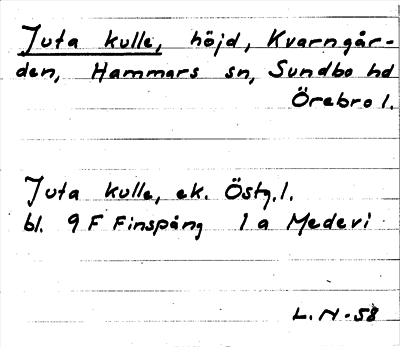 Juta kulle, höjd, Kvarngår-
den, Hammars sn, Sundbo hd
Örebro l.
Juta kulle, ek. Östg. l.
bl. 9 F Finspång 1 a Medevi
L. N. - 58